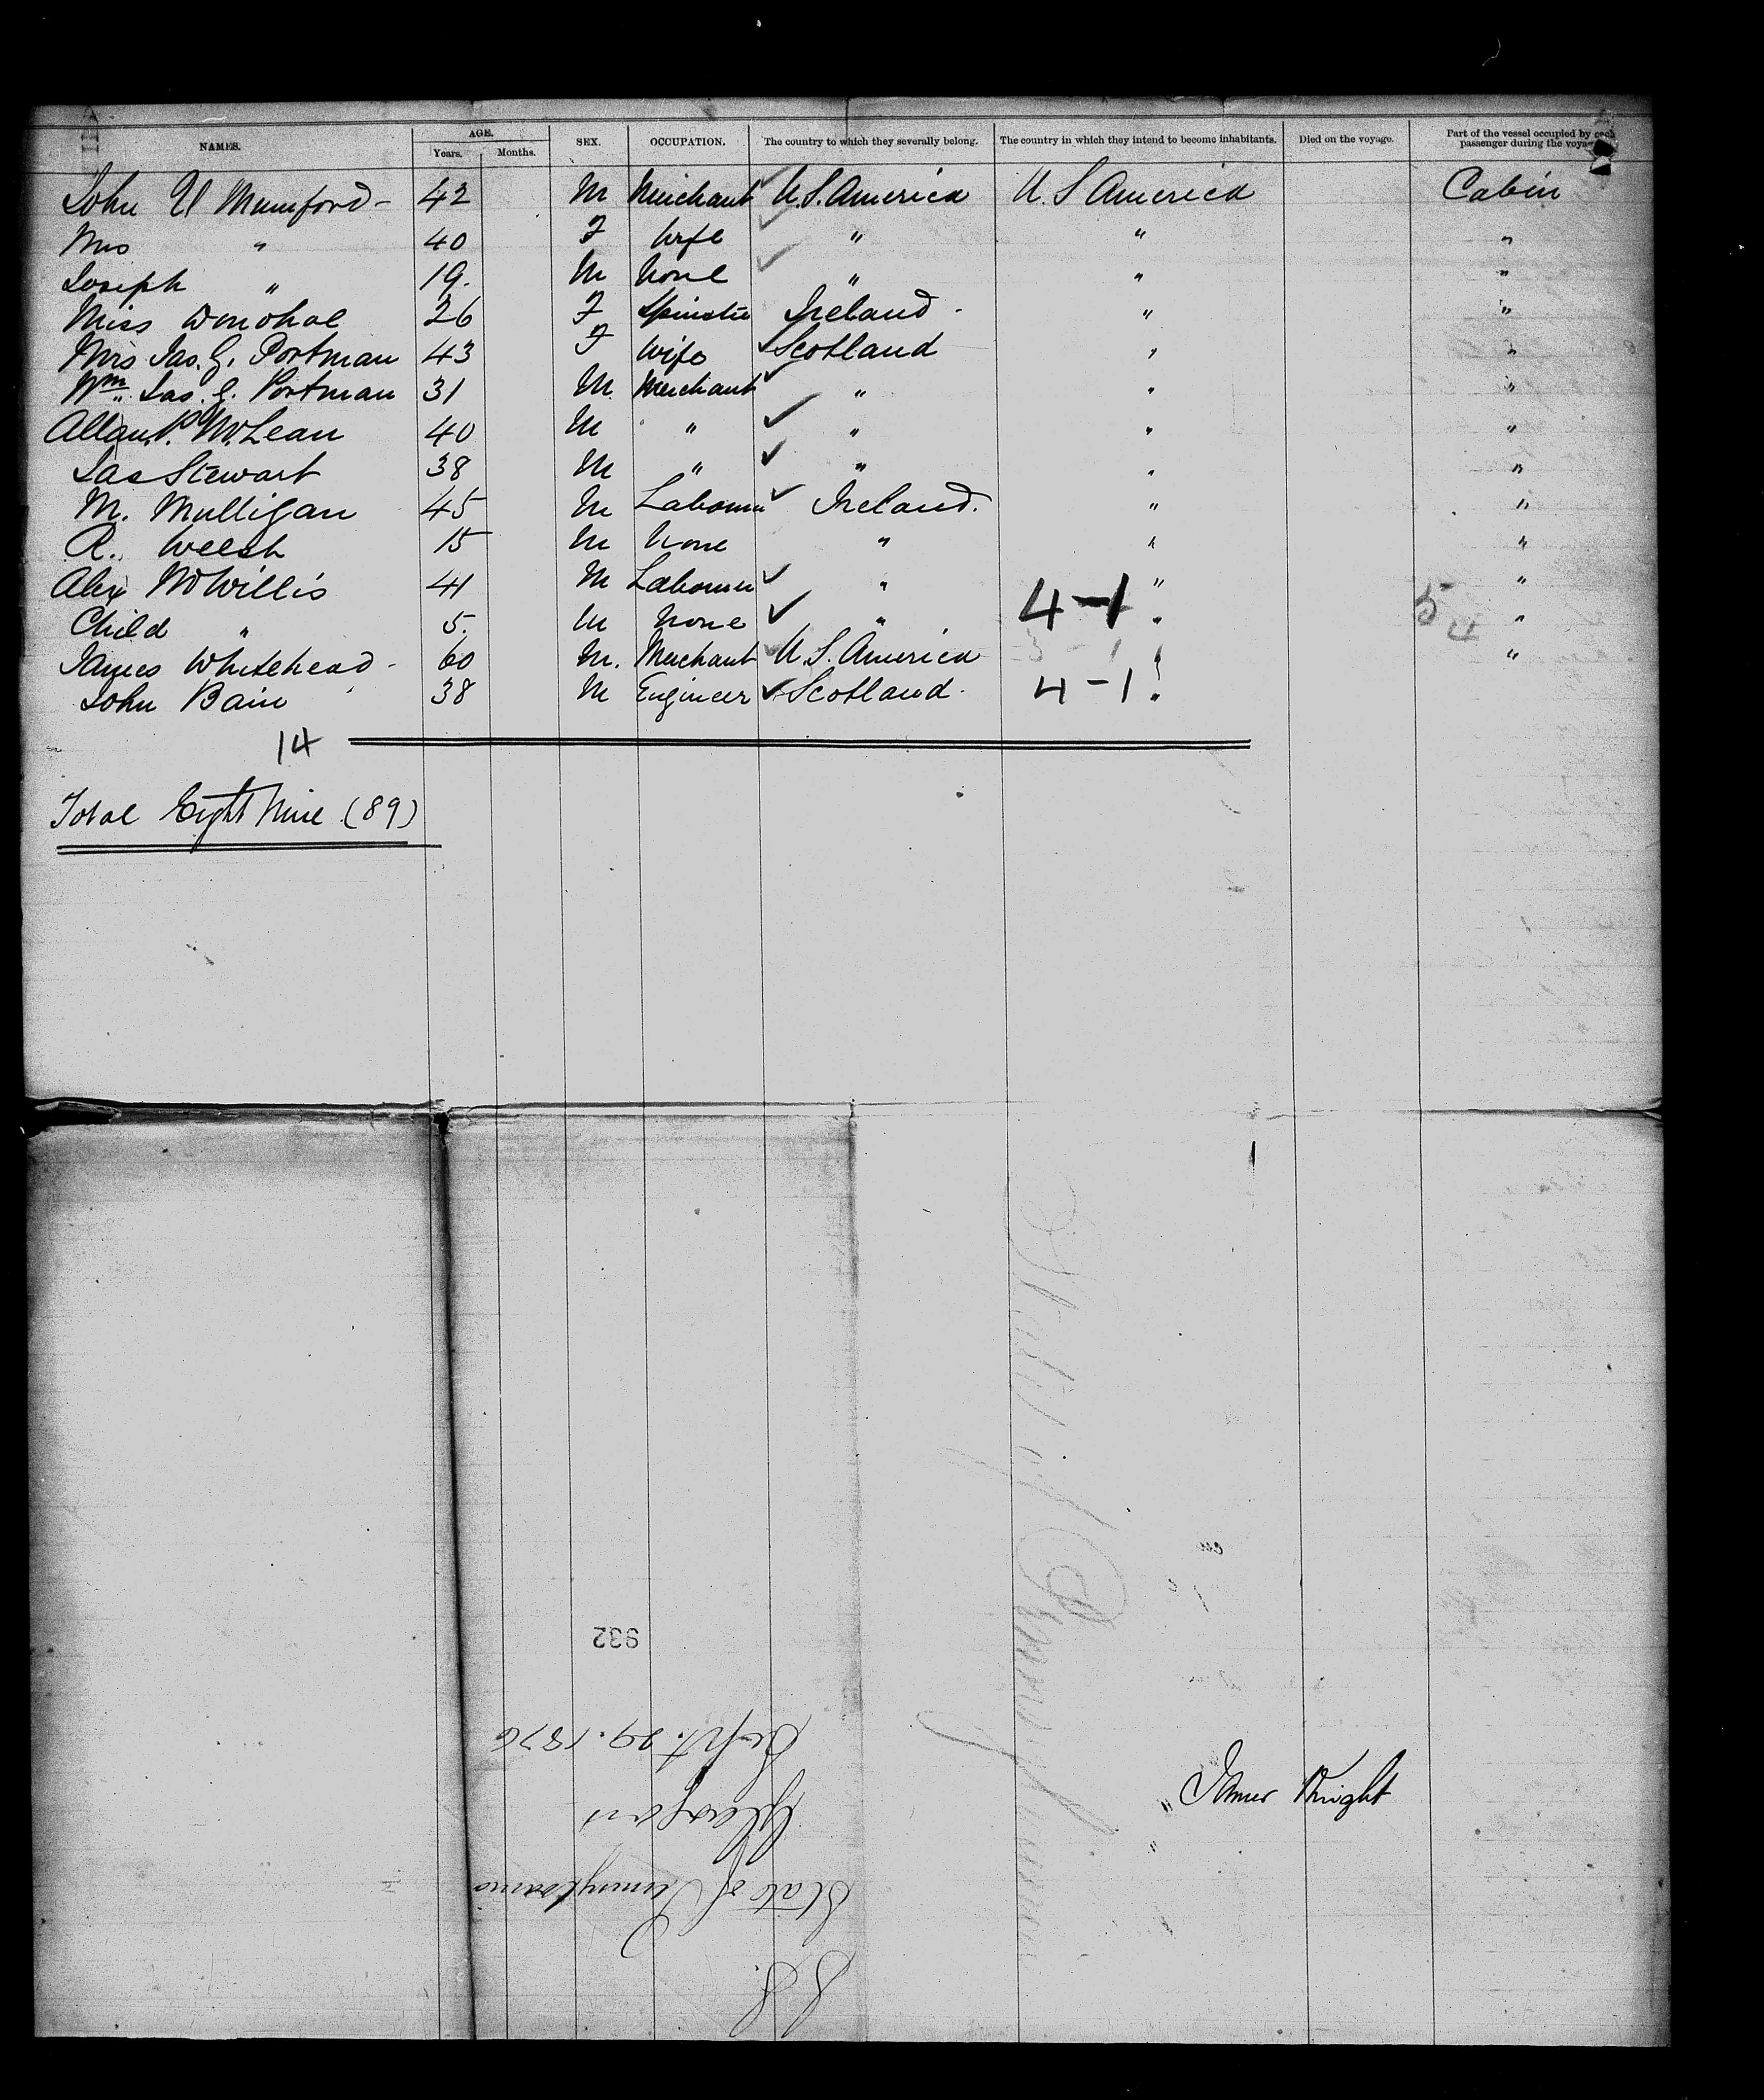 NAMES. AGE. Years. Months. SEX. OCCUPATION. The country to which they severally belong. The country in which they intend to become inhabitants. Died on the voyage. Part of the vessel occupied by each passenger during the voyage
John U Mumford - 42 M Merchant U.S. America U.S America Cabin
Mrs " 40 F Wife " " "
Joseph " 19. M None " " "
Miss Donohoe 26 F Spinster Ireland - " "
Mrs Jas. G. Portman 43 F Wife Scotland " "
Wm. Jas. G. Portman 31 M Merchant " " "
Allan P. McLean 40 M " " " "
Jas Stewart 38 M " " " "
M. Mulligan 45 M Labourer Ireland. " "
R. Welsh 15 M None " " "
Alex McWillis 41 M Labourer " " "
Child " 5. M None " 4-1 " 5 4 "
James Whitehead - 60 M. Merchant U.S. America " "
John Bain 38 M Engineer Scotland. 4-1 "
14
Total Eight Nine (89)
State of Pennsylvania
932
Sept. 29. 1876
Glasgow
State of Pennsylvania
S.S.
James Knight